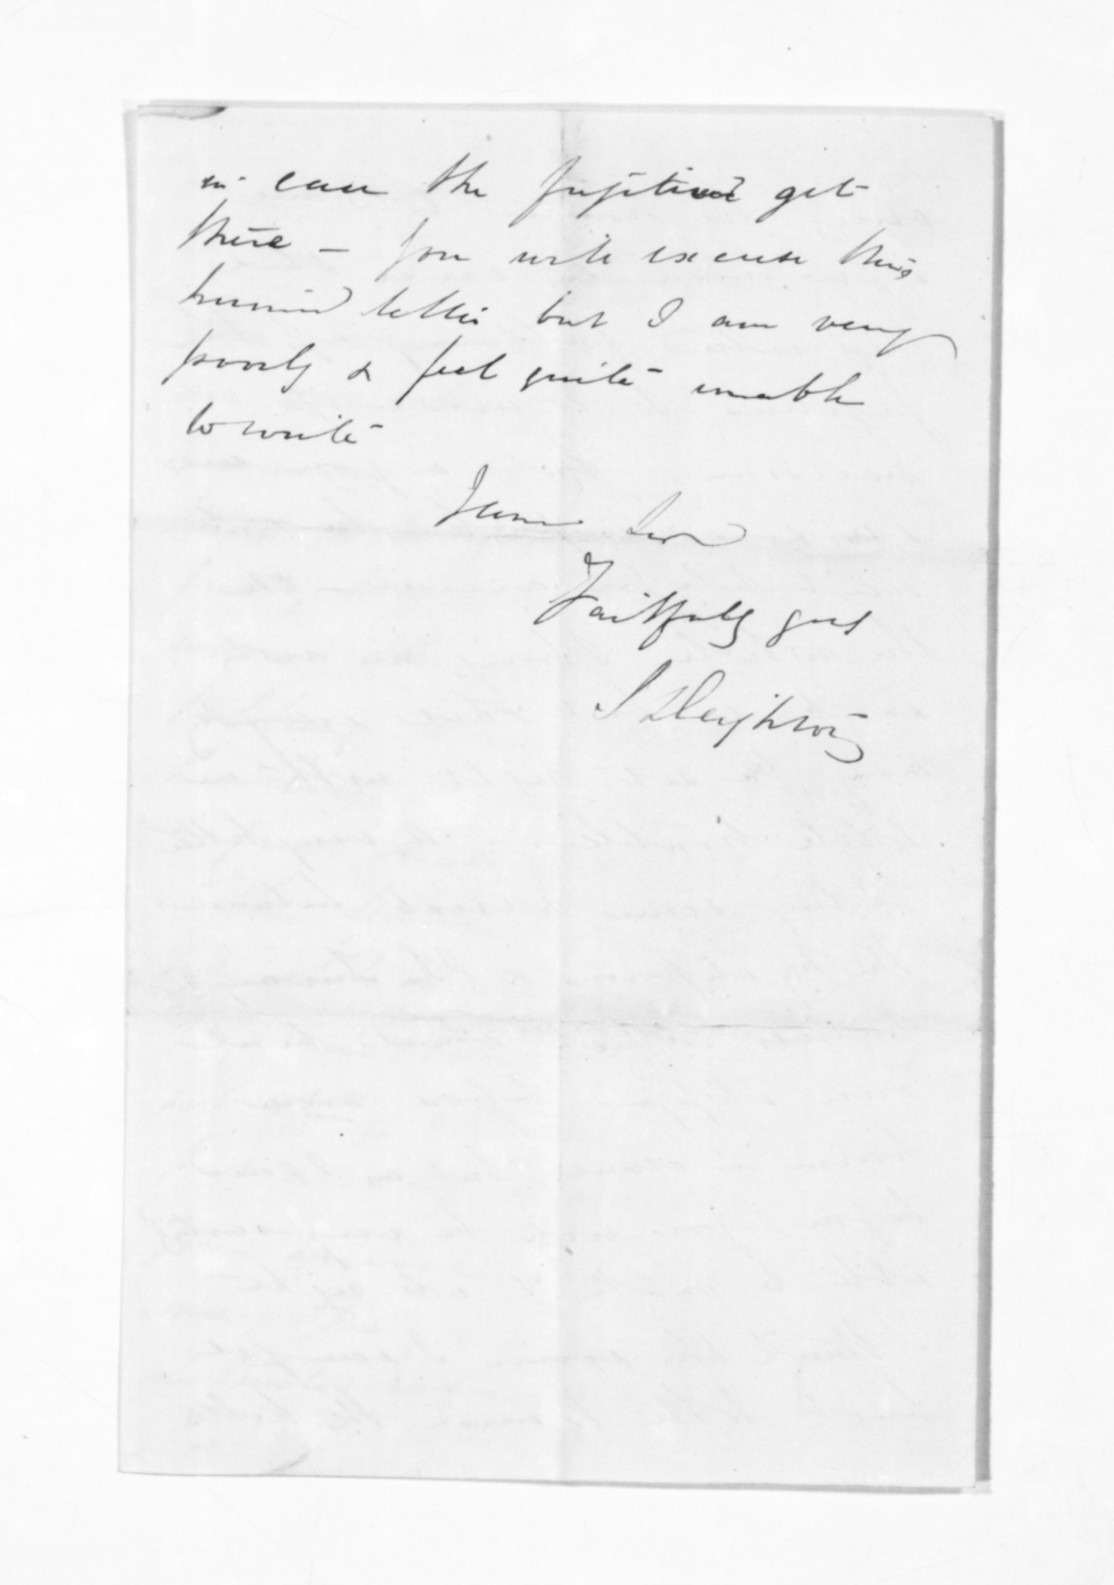 in case the fugitives get
there – you will excuse this
hurried letter but I am very
poorly & feel quite unable
to write
Faithfully yrs
S Deighton